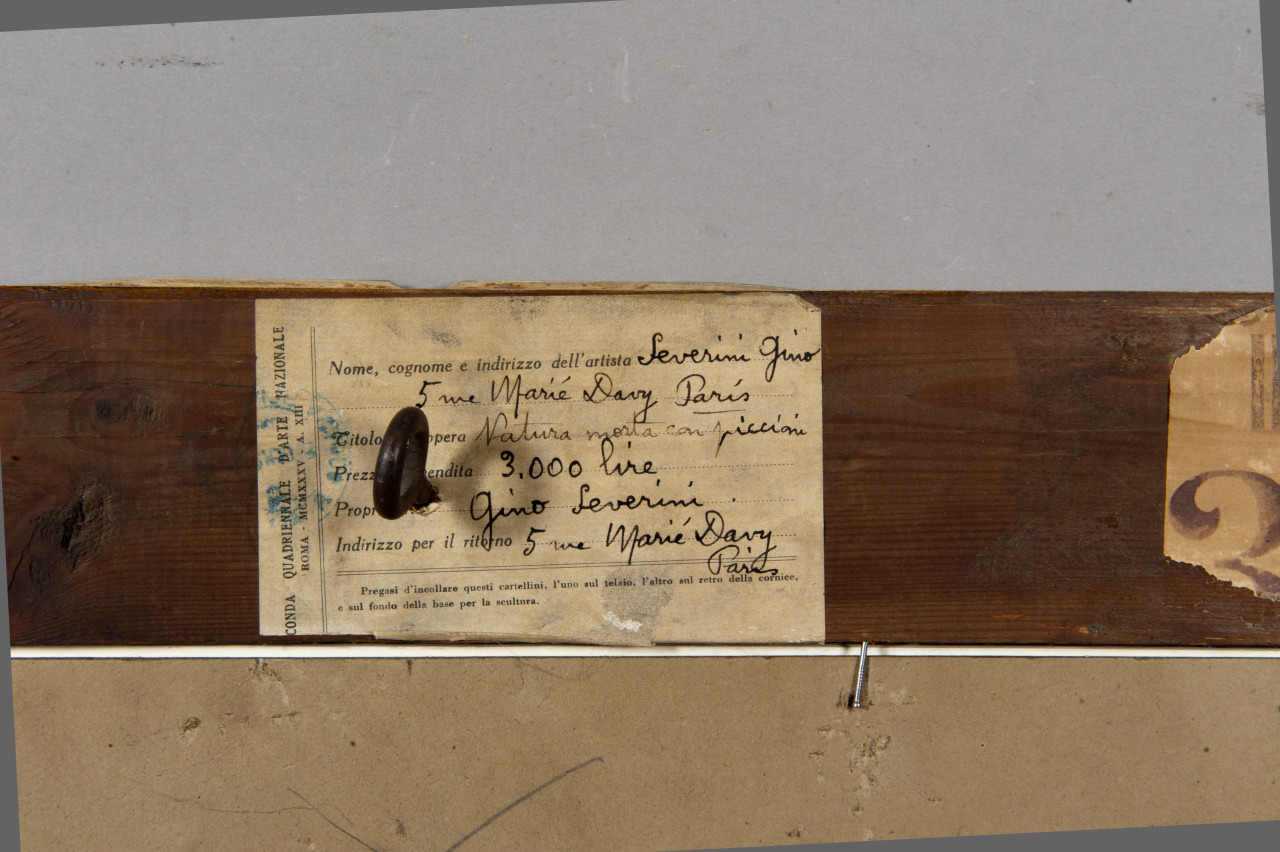 CONDA QUADRIENNALE D'ARTE NAZIONALE
ROMA - MCMXXXV - A. XIII
Nome, cognome e indirizzo dell'artista Severini Gino
5 rue Marié Davy Paris
Titolo opera Natura morta con piccioni
Prezz endita 3.000 lire
Propr Gino Severini.
Indirizzo per il ritorno 5 rue Marié Davy
Paris
Pregasi d'incollare questi cartellini, l'uno sul telaio, l'altro sul retro della cornice,
e sul fondo della base per la scultura.
2